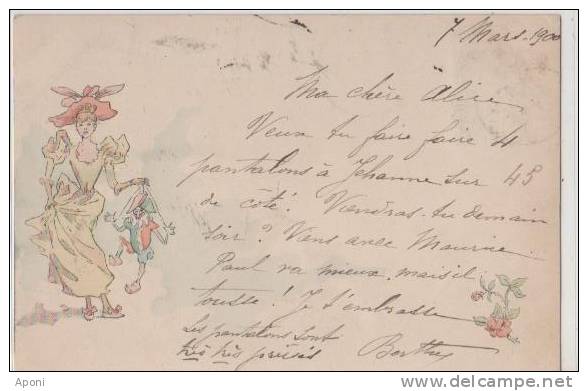 7 Mars 1900
Ma chère Alice
Veux tu faire faire 4
pantalons à Jehanne sur 45
de côté. Viendras-tu demain
soir ? Viens avec Maurice
Paul va mieux, mais il
tousse ! Je t'embrasse
Les pantalons sont
très très pressés Berthe
Aponi
www.delcampe.net